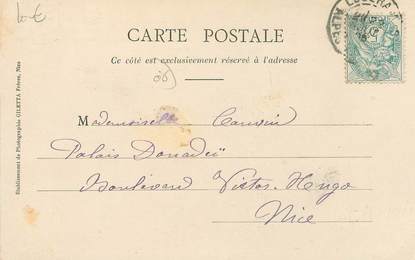 CARTE POSTALE
Ce côté est exclusivement réservé à l'adresse
Mademoiselle
Palais Donadeï
Boulevard Victor-Hugo
Nice
Etablissement de Photographie GILETTA Frères, Nice